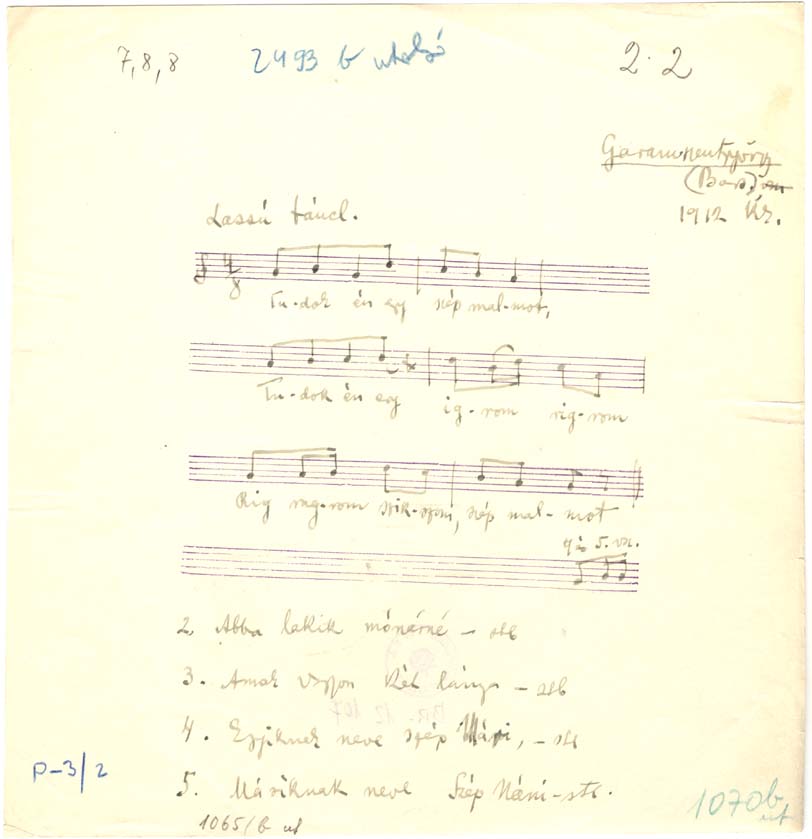 7, 8, 8 2493 b utolsó 2.2
Garamszentgyörgy
(Bars)
1912 Kz.
Lassú táncl.
Tu-dok én egy szép mal-mot,
Tu-dok én egy ig-rom rig-rom
Rig rag-rom szik-szom, szép mal-mot
4 és 5. vsz.
2. Abba lakik mónárné - stb
3. Annak vagyon két lánya - stb
4. Egyiknek neve szép Mári, - stb
5. Másiknak neve Szép Náni - stb.
P-3/2
1070b ut
1065/b ut